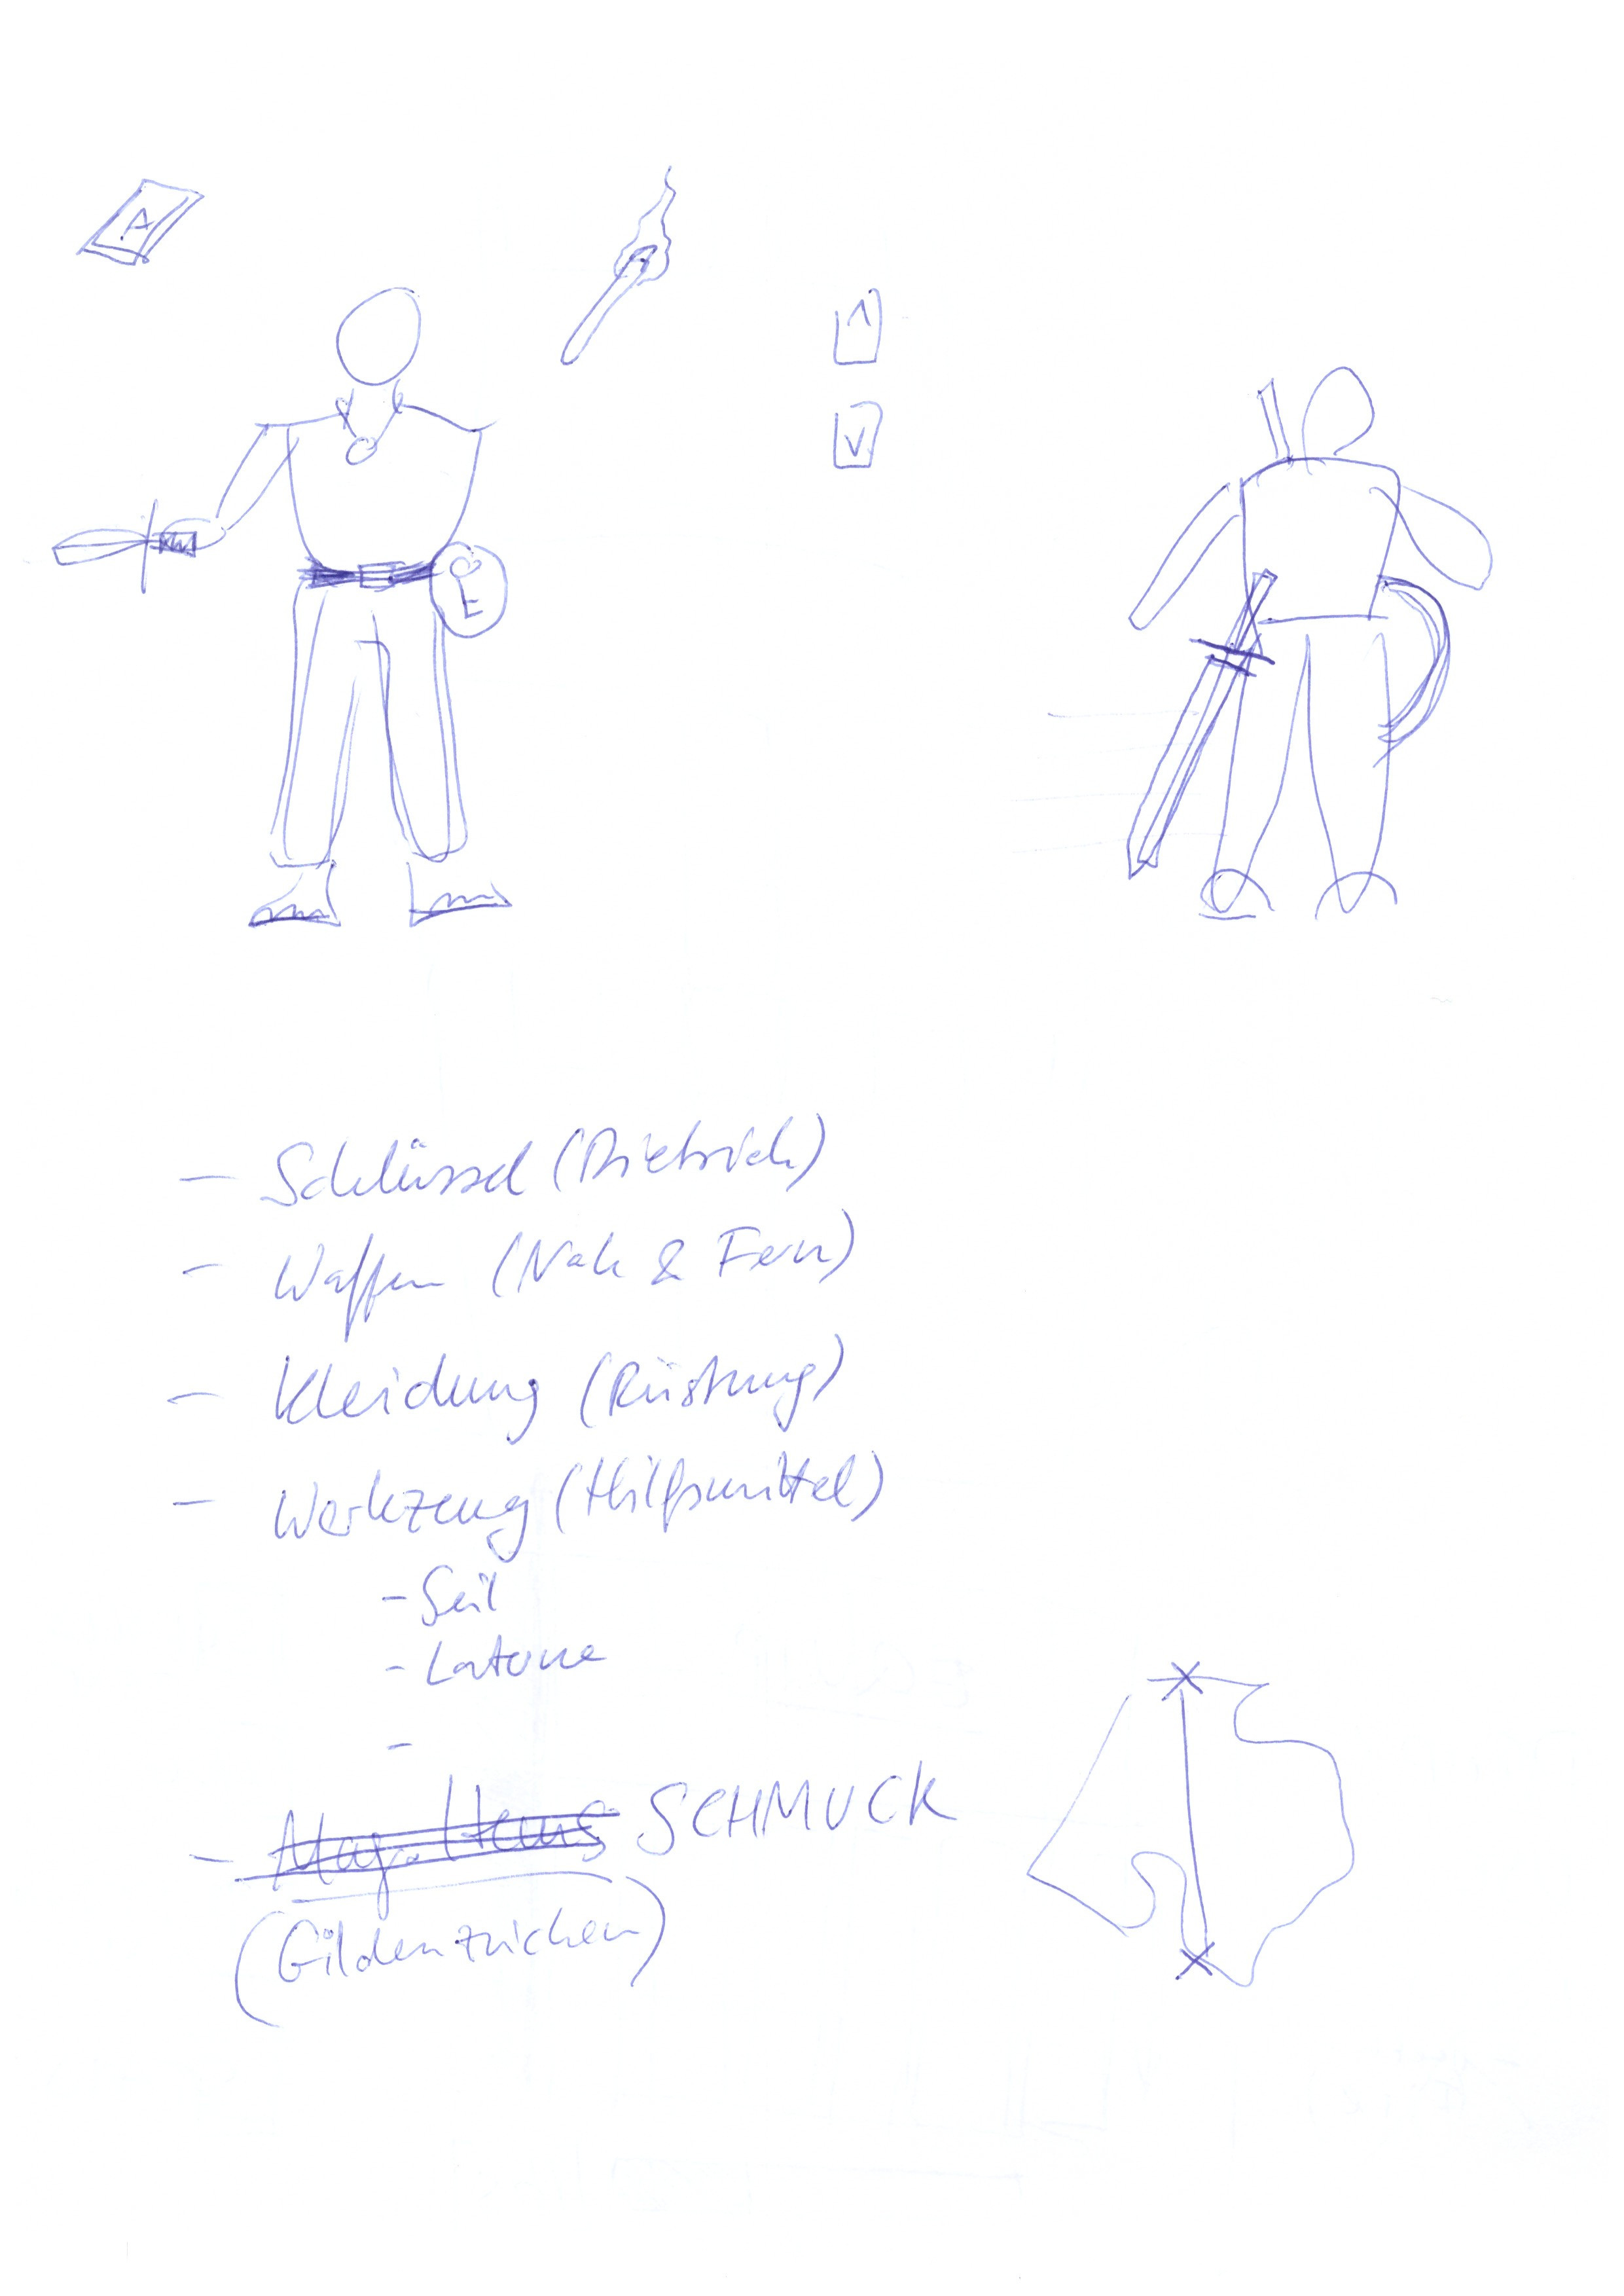 A
- Schlüssel (Dietrich)
- Waffen (Nah & Fern)
- Kleidung (Rüstung)
- Werkzeug (Hilfsmittel)
- Seil
- Laterne
-
- Mag. Items SCHMUCK
(Gildenzeichen)